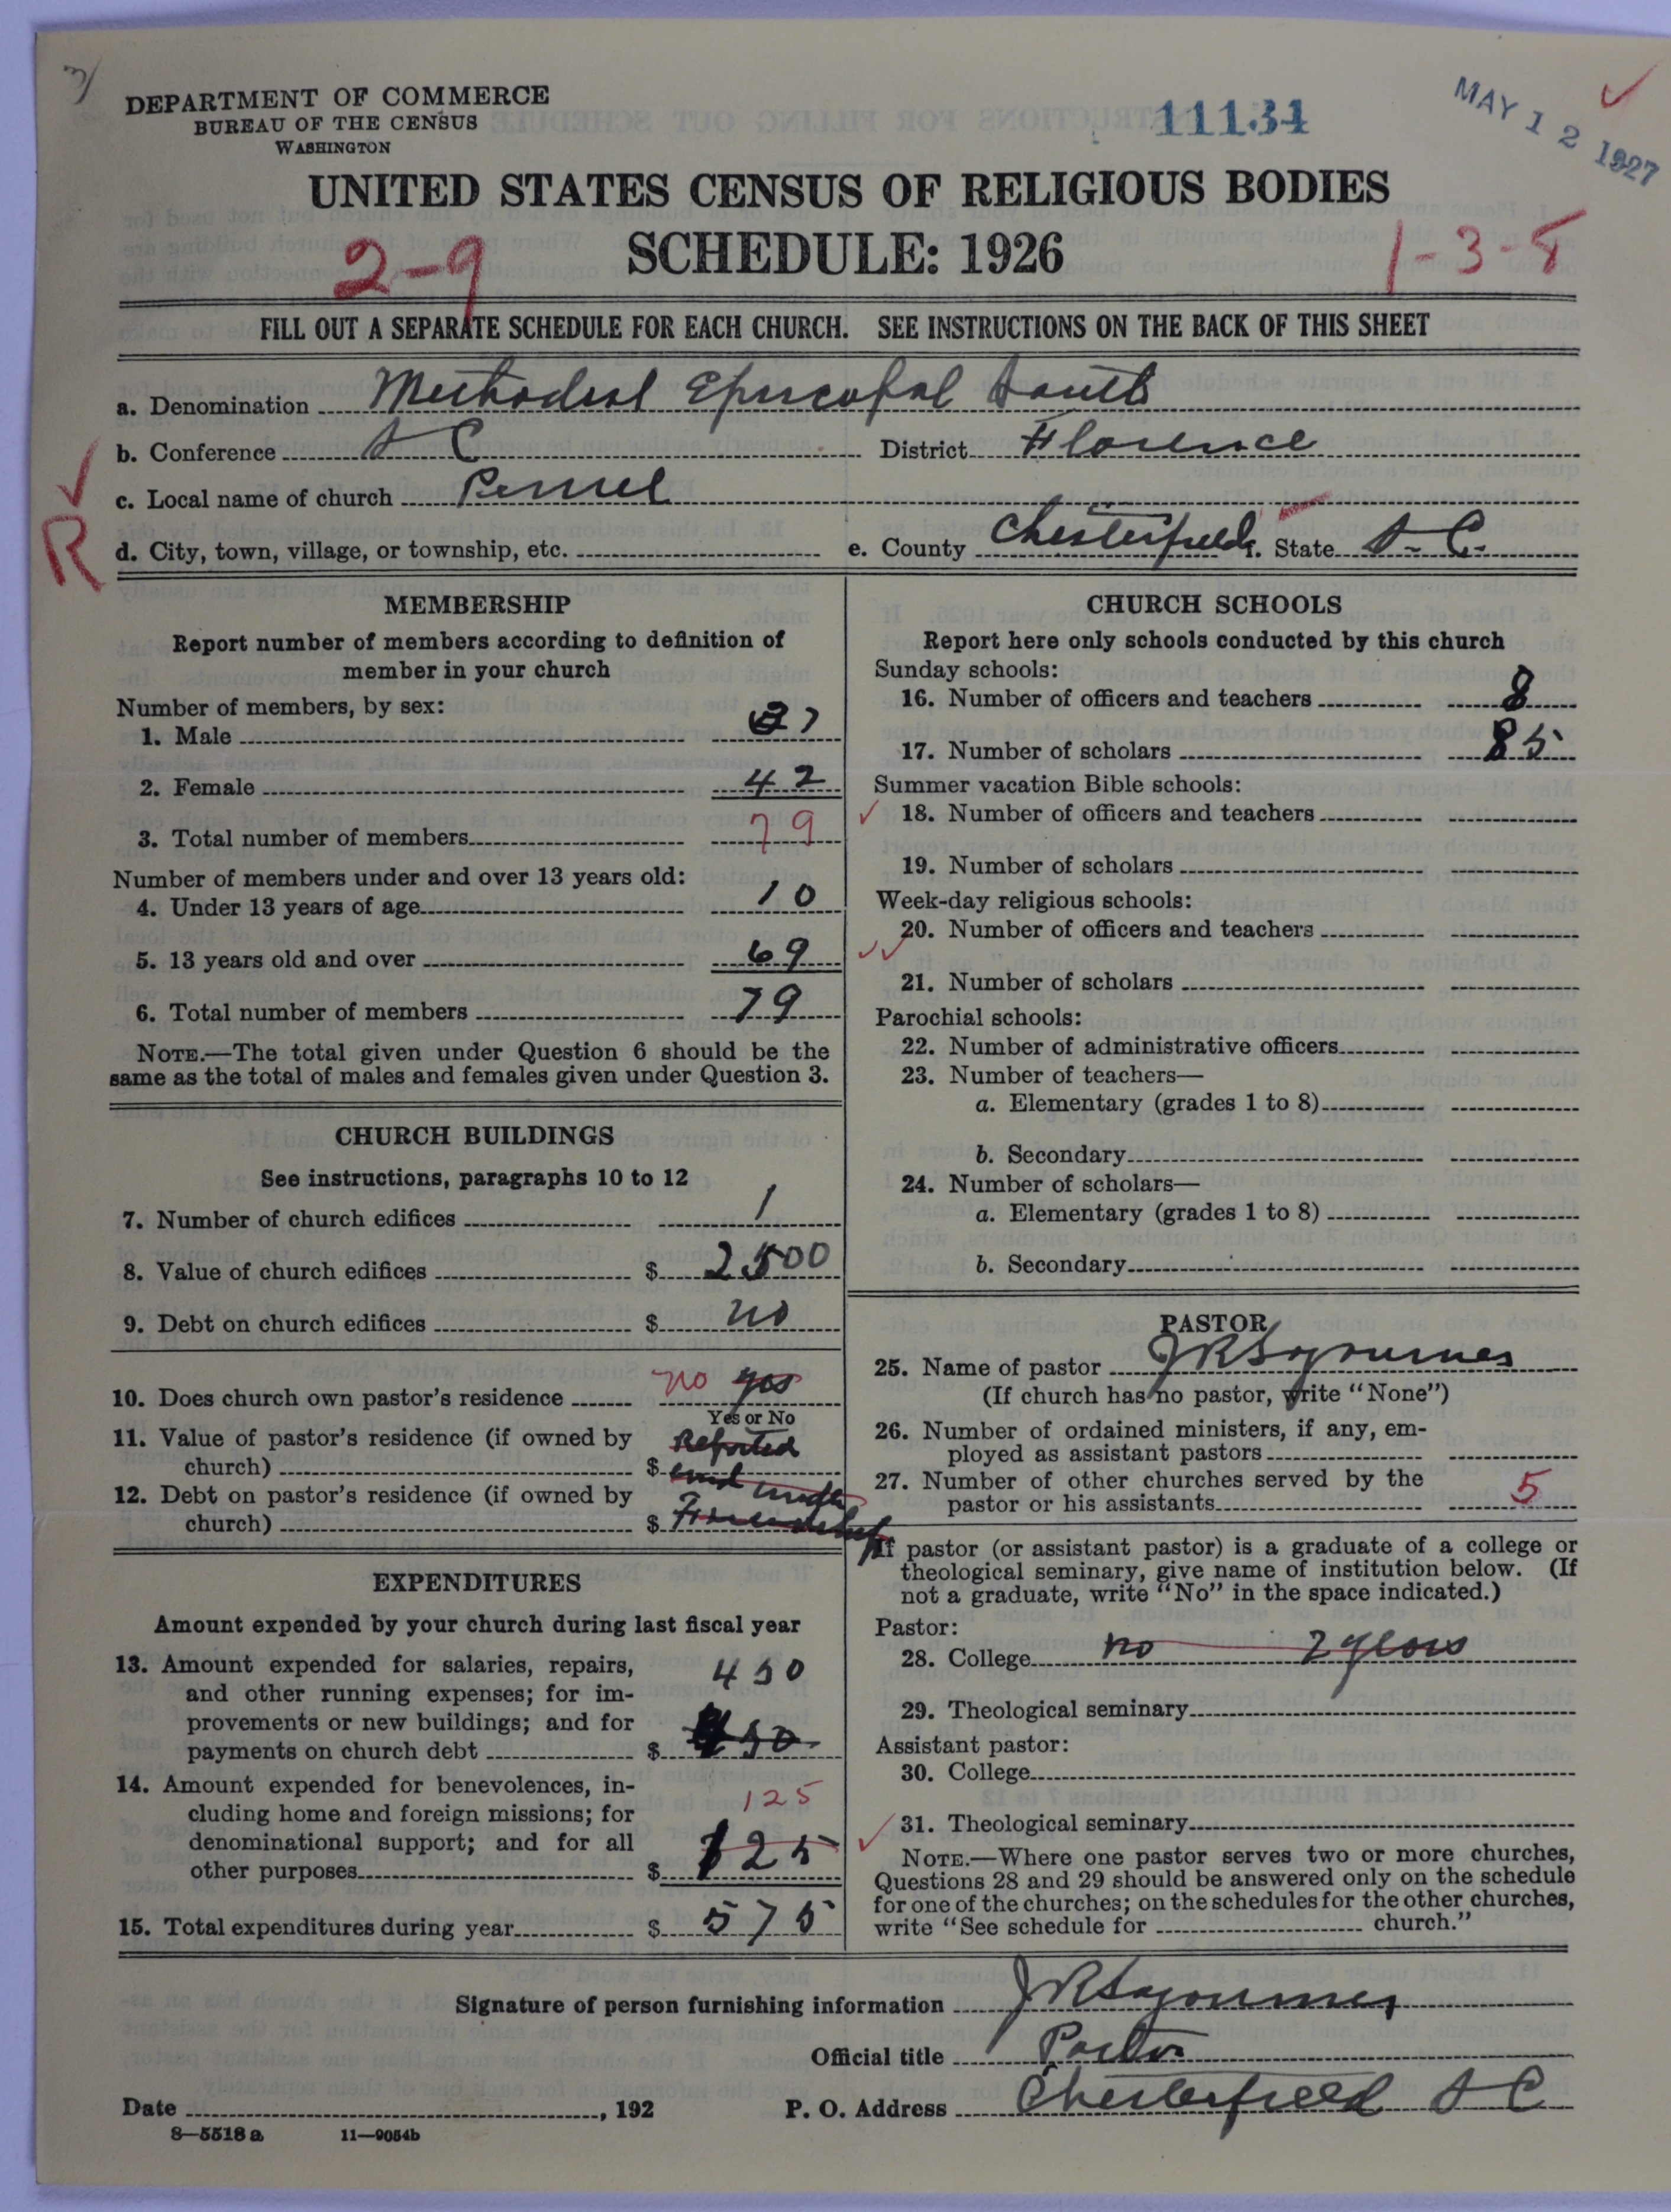 DEPARTMENT OF COMMERCE
BUREAU OF THE CENSUS
WASHINGTON
11134
MAY 12 1927
UNITED STATES CENSUS OF RELIGIOUS BODIES
SCHEDULE: 1926
2-9
1-3-8
FILL OUT A SEPARATE SCHEDULE FOR EACH CHURCH. SEE INSTRUCTIONS ON THE BACK OF THIS SHEET
a. Denomination Methodist Episcopal South
b. Conference S C District Florence
c. Local name of church
R
d. City, town, village, or township, etc. e. County Chesterfield f. State S. C.
MEMBERSHIP
Report number of members according to definition of
member in your church
Number of members, by sex:
1. Male 37
2. Female 42
3. Total number of members 79
Number of members under and over 13 years old:
4. Under 13 years of age 10
5. 13 years old and over 69
6. Total number of members 79
NOTE.—The total given under Question 6 should be the
same as the total of males and females given under Question 3.
CHURCH BUILDINGS
See instructions, paragraphs 10 to 12
7. Number of church edifices 1
8. Value of church edifices $ 2500
9. Debt on church edifices $ no
10. Does church own pastor's residence no yes
Yes or No
11. Value of pastor's residence (if owned by Reported
church) $ and
12. Debt on pastor's residence (if owned by under
church) $
EXPENDITURES
Amount expended by your church during last fiscal year
13. Amount expended for salaries, repairs, 450
and other running expenses; for im-
provements or new buildings; and for
payments on church debt $ 450
14. Amount expended for benevolences, in-
cluding home and foreign missions; for 125
denominational support; and for all
other purposes $ 125
15. Total expenditures during year $ 575
CHURCH SCHOOLS
Report here only schools conducted by this church
Sunday schools:
16. Number of officers and teachers 8
17. Number of scholars 85
Summer vacation Bible schools:
18. Number of officers and teachers
19. Number of scholars
Week-day religious schools:
20. Number of officers and teachers
21. Number of scholars
Parochial schools:
22. Number of administrative officers
23. Number of teachers—
a. Elementary (grades 1 to 8)
b. Secondary
24. Number of scholars—
a. Elementary (grades 1 to 8)
b. Secondary
PASTOR
25. Name of pastor J R Sojourner
(If church has no pastor, write "None")
26. Number of ordained ministers, if any, em-
ployed as assistant pastors
27. Number of other churches served by the
pastor or his assistants 5
If pastor (or assistant pastor) is a graduate of a college or
theological seminary, give name of institution below. (If
not a graduate, write "No" in the space indicated.)
Pastor:
28. College no 2 years
29. Theological seminary
Assistant pastor:
30. College
31. Theological seminary
NOTE.—Where one pastor serves two or more churches,
Questions 28 and 29 should be answered only on the schedule
for one of the churches; on the schedules for the other churches,
write "See schedule for church."
Signature of person furnishing information J R Sojourner
Official title Pastor
Date , 192 P. O. Address Chesterfield S C
8—5518 a 11—9054b